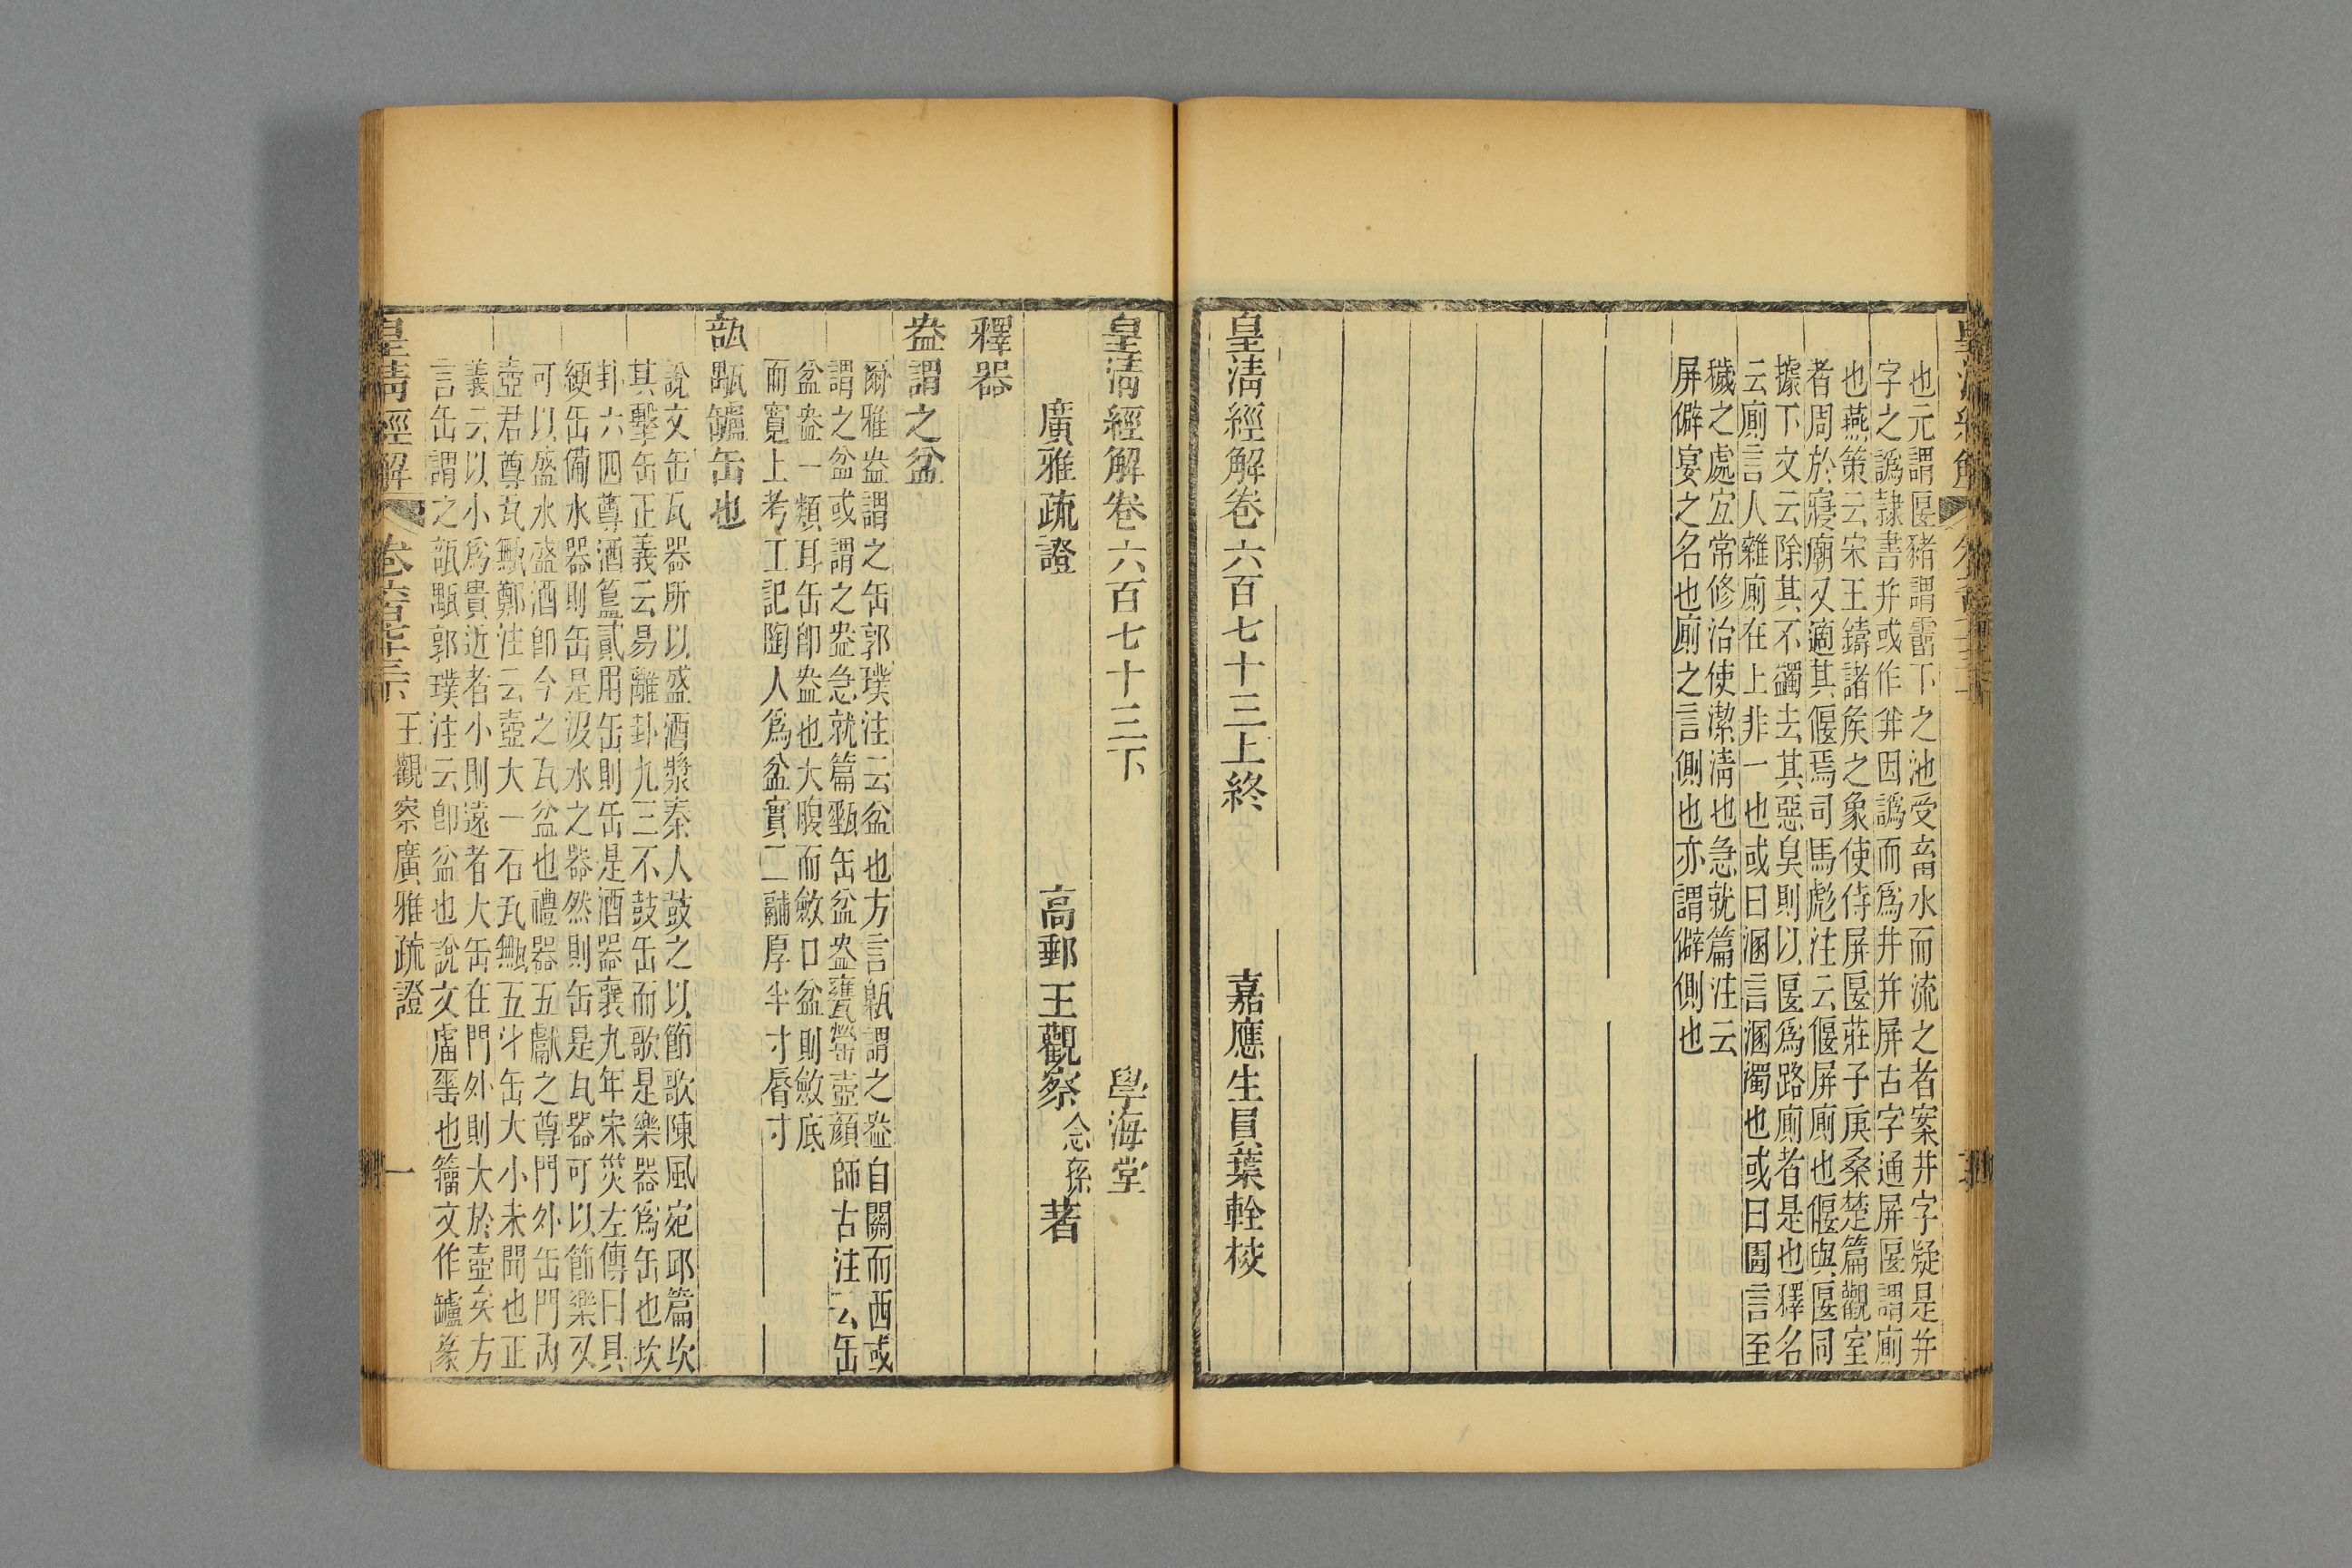 也元謂匽豬謂霤下之池受畜水而流之者案井字疑是幷
字之譌隷書幷或作并因譌而爲井幷屏古字通屏匽謂廁
也燕策云宋王鑄諸矦之象使侍屏匽莊子庚桑楚篇觀室
者周於寢廟又適其偃焉司馬彪注云偃屏廁也偃與匽同
據下文云除其不蠲去其惡臭則以匽爲路廁者是也釋名
云廁言人雜廁在上非一也或曰溷言溷濁也或曰圊言至
穢之處宜常修治使潔淸也急就篇注云
屏僻宴之名也廁之言側也亦謂僻側也
皇淸經解卷六百七十三上終 嘉應生員葉輇校
皇淸經解卷六百七十三下 學海堂
廣雅疏證 高郵王觀察念孫著
釋器
盎謂之盆
爾雅盎謂之缶郭璞注云盆也方言甀謂之盎自關而西或
謂之盆或謂之盎急就篇甄缶盆盎甕罃壺顔師古注云缶
盆盎一類耳缶卽盎也大腹而斂口盆則斂底
而寬上考工記陶人爲盆實二鬴厚半寸脣寸
瓿甊罏缶也
說文缶瓦器所以盛酒漿秦人鼓之以節歌陳風宛邱篇坎
其擊缶正義云易離卦九三不鼓缶而歌是樂器爲缶也坎
卦六四尊酒簋貳用缶則缶是酒器襄九年宋災左傳曰具
綆缶備水器則缶是汲水之器然則缶是瓦器可以節樂又
可以盛水盛酒卽今之瓦盆也禮器五獻之尊門外缶門內
壺君尊瓦甒鄭注云壺大一石瓦甒五斗缶大小未聞也正
義云以小爲貴近者小則遠者大缶在門外則大於壺矣方
言缶謂之瓿甊郭璞注云卽盆也說文𤮀罌也籀文作罏篆
皇淸經解 卷六百七十三下 王觀察廣雅疏證 一